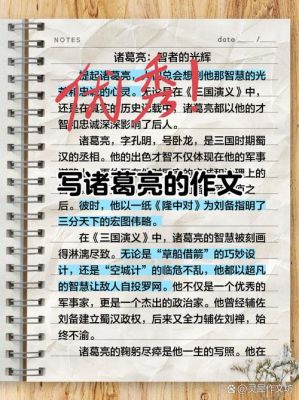 NOTES
date / /
诸葛亮：智者的光辉
提起诸葛亮，总会想到他那智慧的光
和忠诚的心灵。无论是在《三国演义》中，
还是在真实的历史记载中，诸葛亮都以他的才
智和忠诚深深影响了后人。
优秀！
诸葛亮，字孔明，号卧龙，是三国时期蜀
汉的丞相。他的出色才智不仅体现在他的军事
写诸葛亮的作文
之
后。彼时，他以一纸《隆中对》为刘备指明了
三分天下的宏图伟略。
在《三国演义》中，诸葛亮的智慧被刻画
得淋漓尽致。无论是“草船借箭”的巧妙设
计，还是“空城计”的临危不乱，他都以超凡
的智慧让敌人自投罗网。他不仅是一个优秀的
军事家，更是一个杰出的政治家。他曾经辅佐
刘备建立蜀汉政权，后来又全力辅佐刘禅，始
终不渝。
诸葛亮的鞠躬尽瘁是他一生的写照。他在
@灵犀作文坊